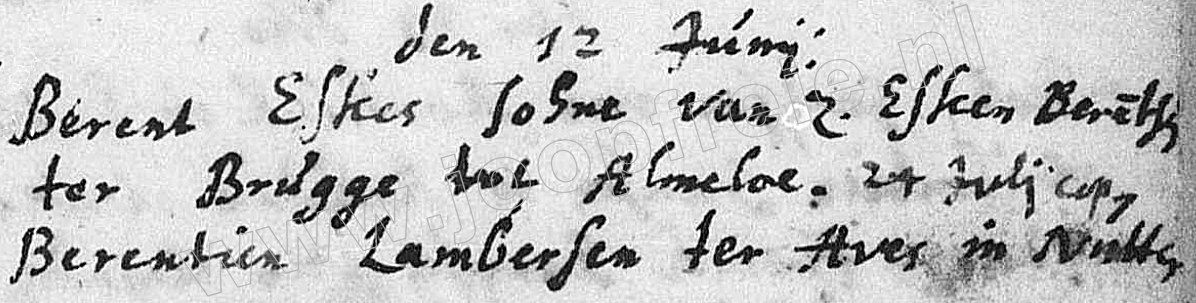 den 12 Junij.
Berent Eskes sohne van z. Esken Berēts
ter Brugge tot Almeloe. 24 Julij cop,
Berentien Lambersen ter Aves in Nutter
www.joopfroje.nl